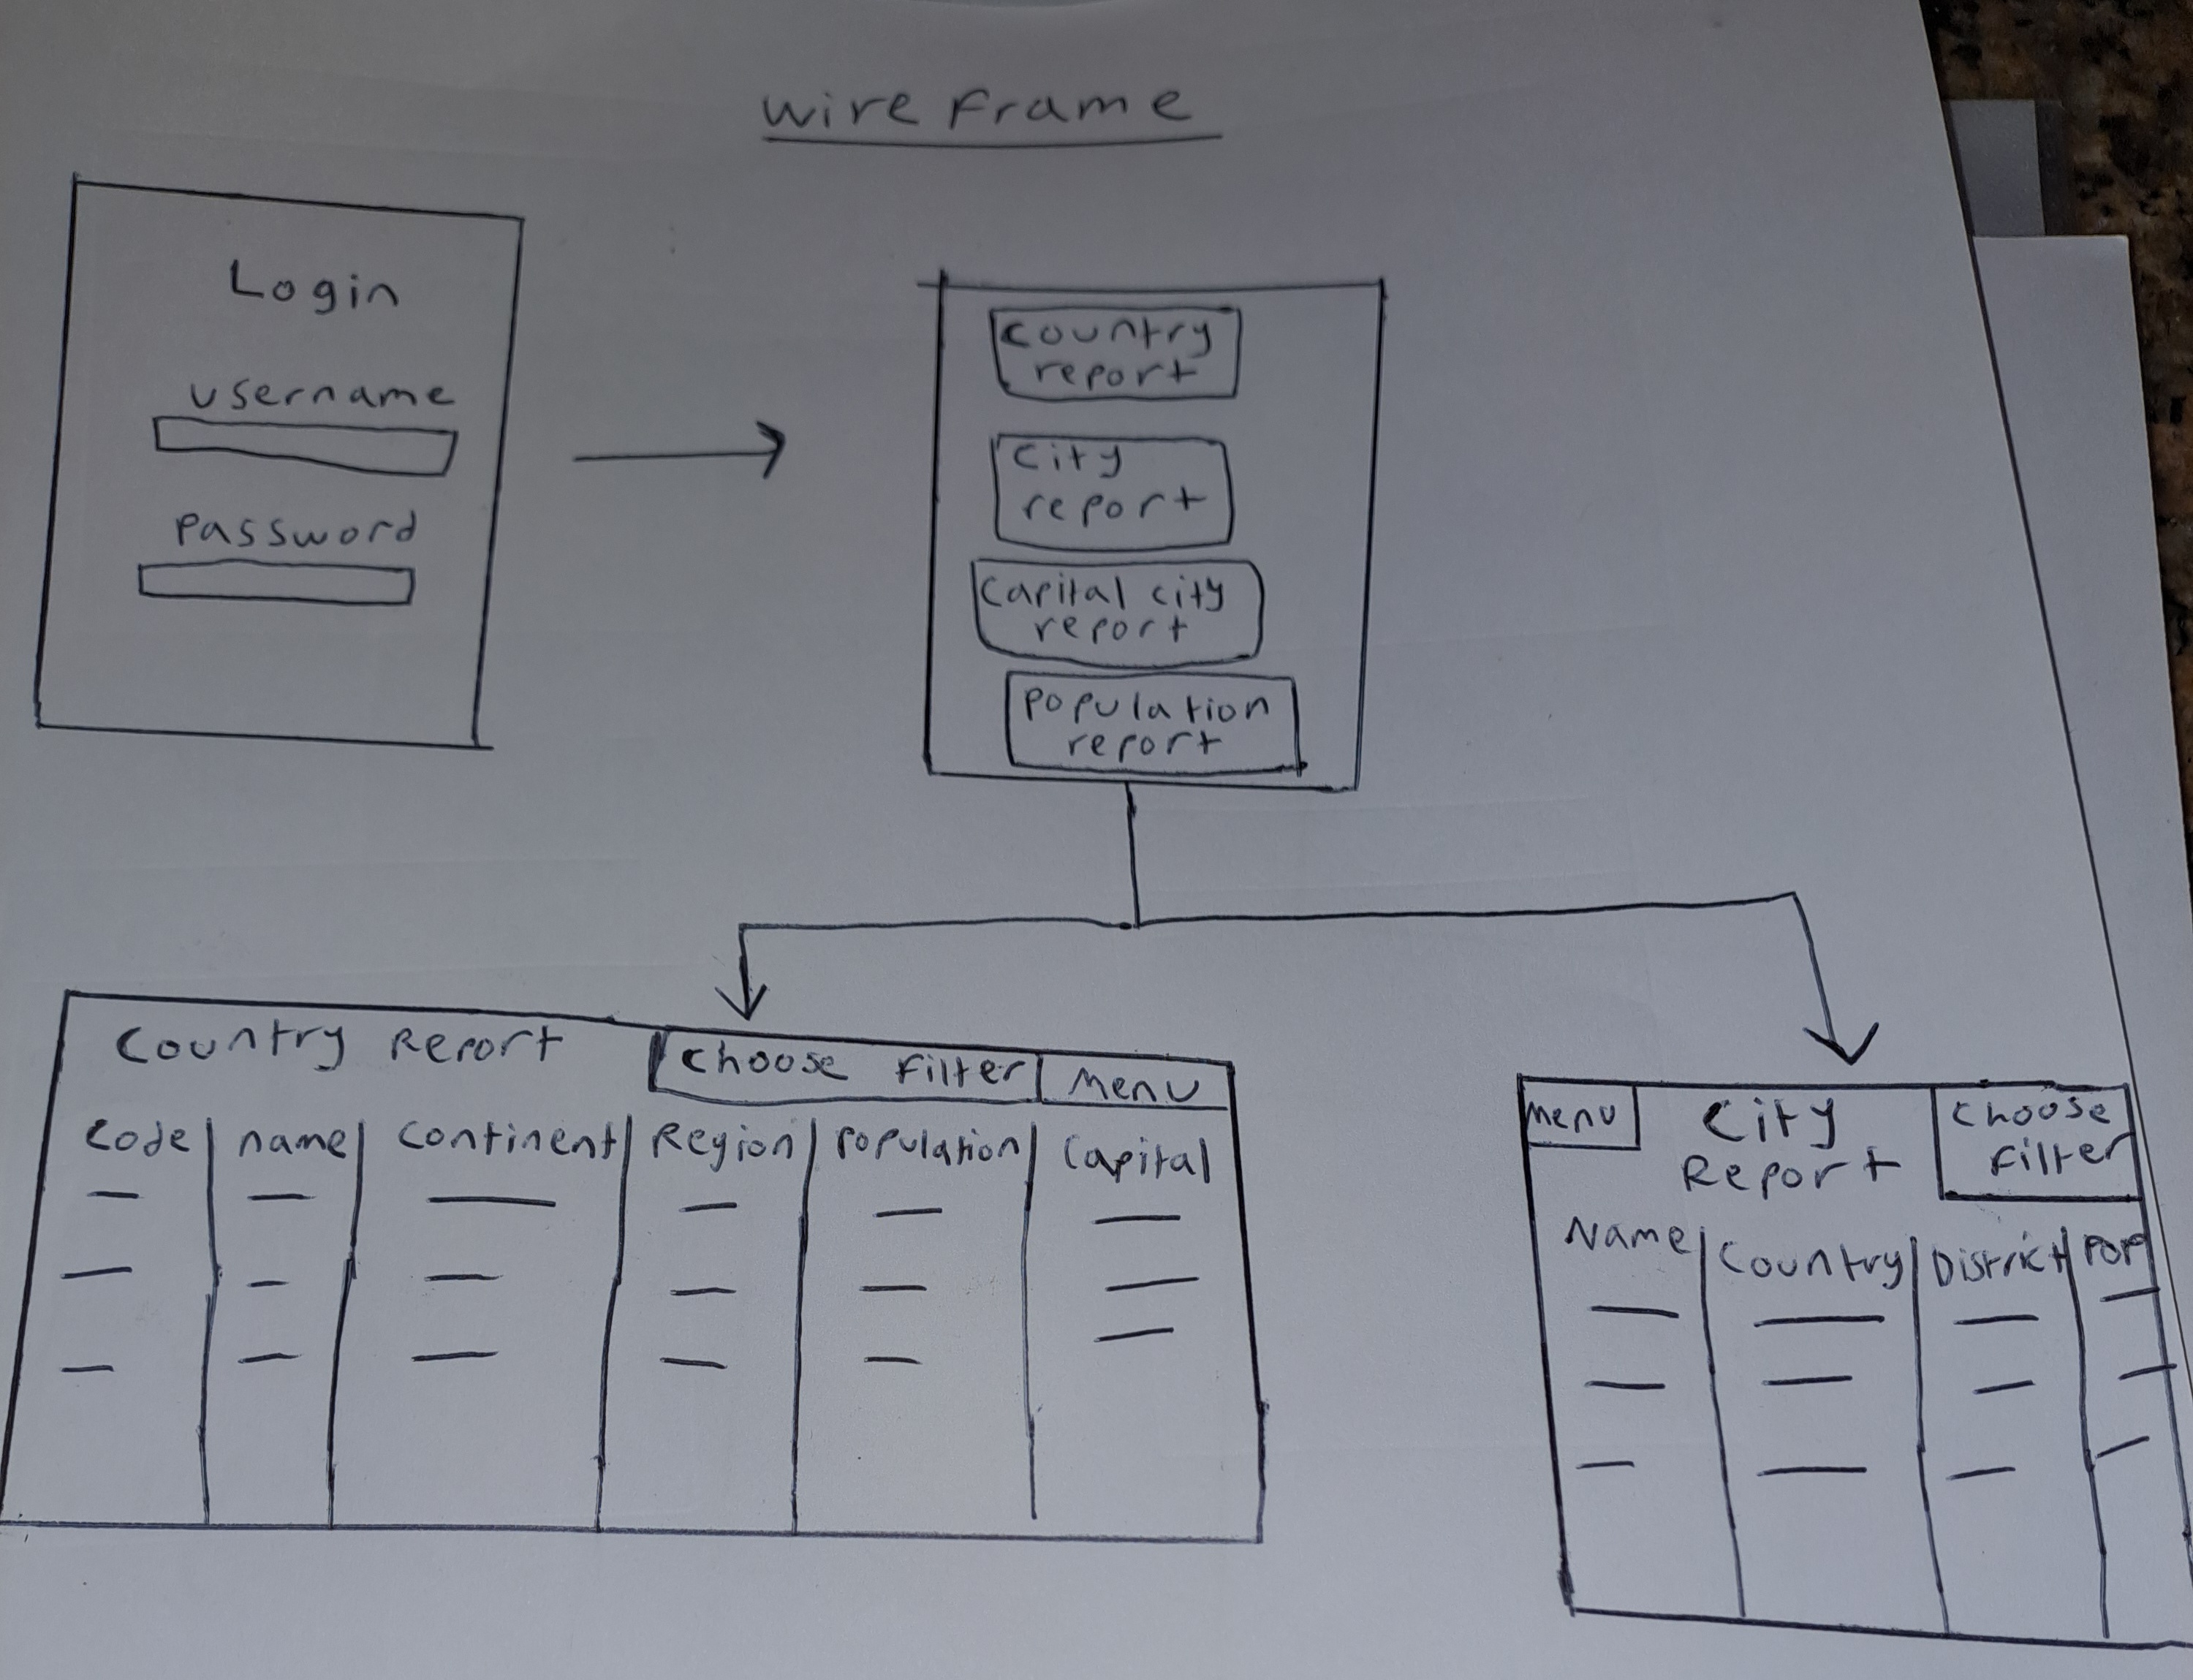 wire frame
Login
username
password
country
report
city
report
capital city
report
population
report
Country Report
choose filter
menu
code name continent Region population capital
menu
City
Report
choose
filter
Name Country District pop